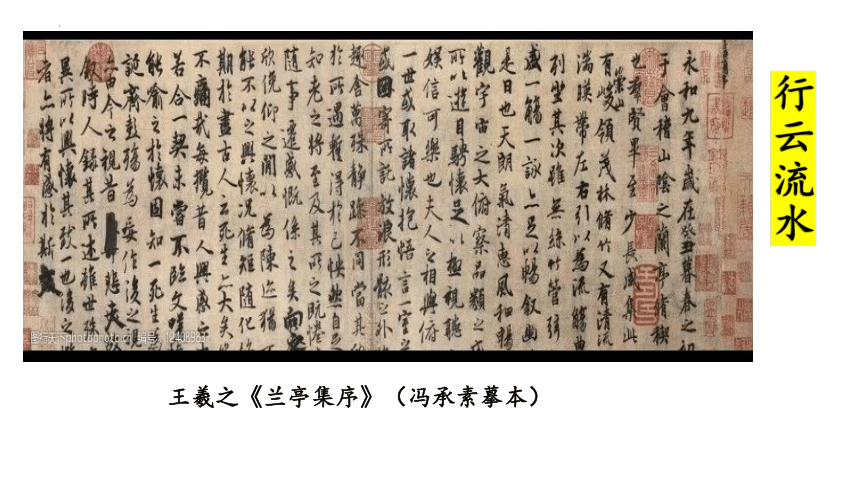 永和九年歲在癸丑暮春之初
于會稽山陰之蘭亭脩稧
也群賢畢至少長咸集此
有崇山峻領茂林脩竹又有清流
湍暎帶左右引以為流觴曲
列坐其次雖無絲竹管弦
盛一觴一詠亦足以暢敘幽
是日也天朗氣清惠風和暢
觀宇宙之大俯察品類之
所以遊目騁懷足以極視聽
娛信可樂也夫人之相與俯
一世或取諸懷抱悟言一室之
或因寄所託放浪形骸之外
趣舍萬殊靜躁不同當其
於所遇蹔得於己怏然自
知老之將至及其所之既惓
隨事遷感慨係之矣向
欣俛仰之閒以為陳迹猶不
能不以之興懷況脩短隨化
期於盡古人云死生亦大矣
不痛哉每攬昔人興感
若合一契未嘗不臨文
能喻之於懷固知一死生
誕齊彭殤為妄作後之視
亦由今之視昔 悲夫
敘時人錄其所述雖世殊
異所以興懷其致一也後之
者亦將有感於斯文
行云流水
王羲之《兰亭集序》（冯承素摹本）